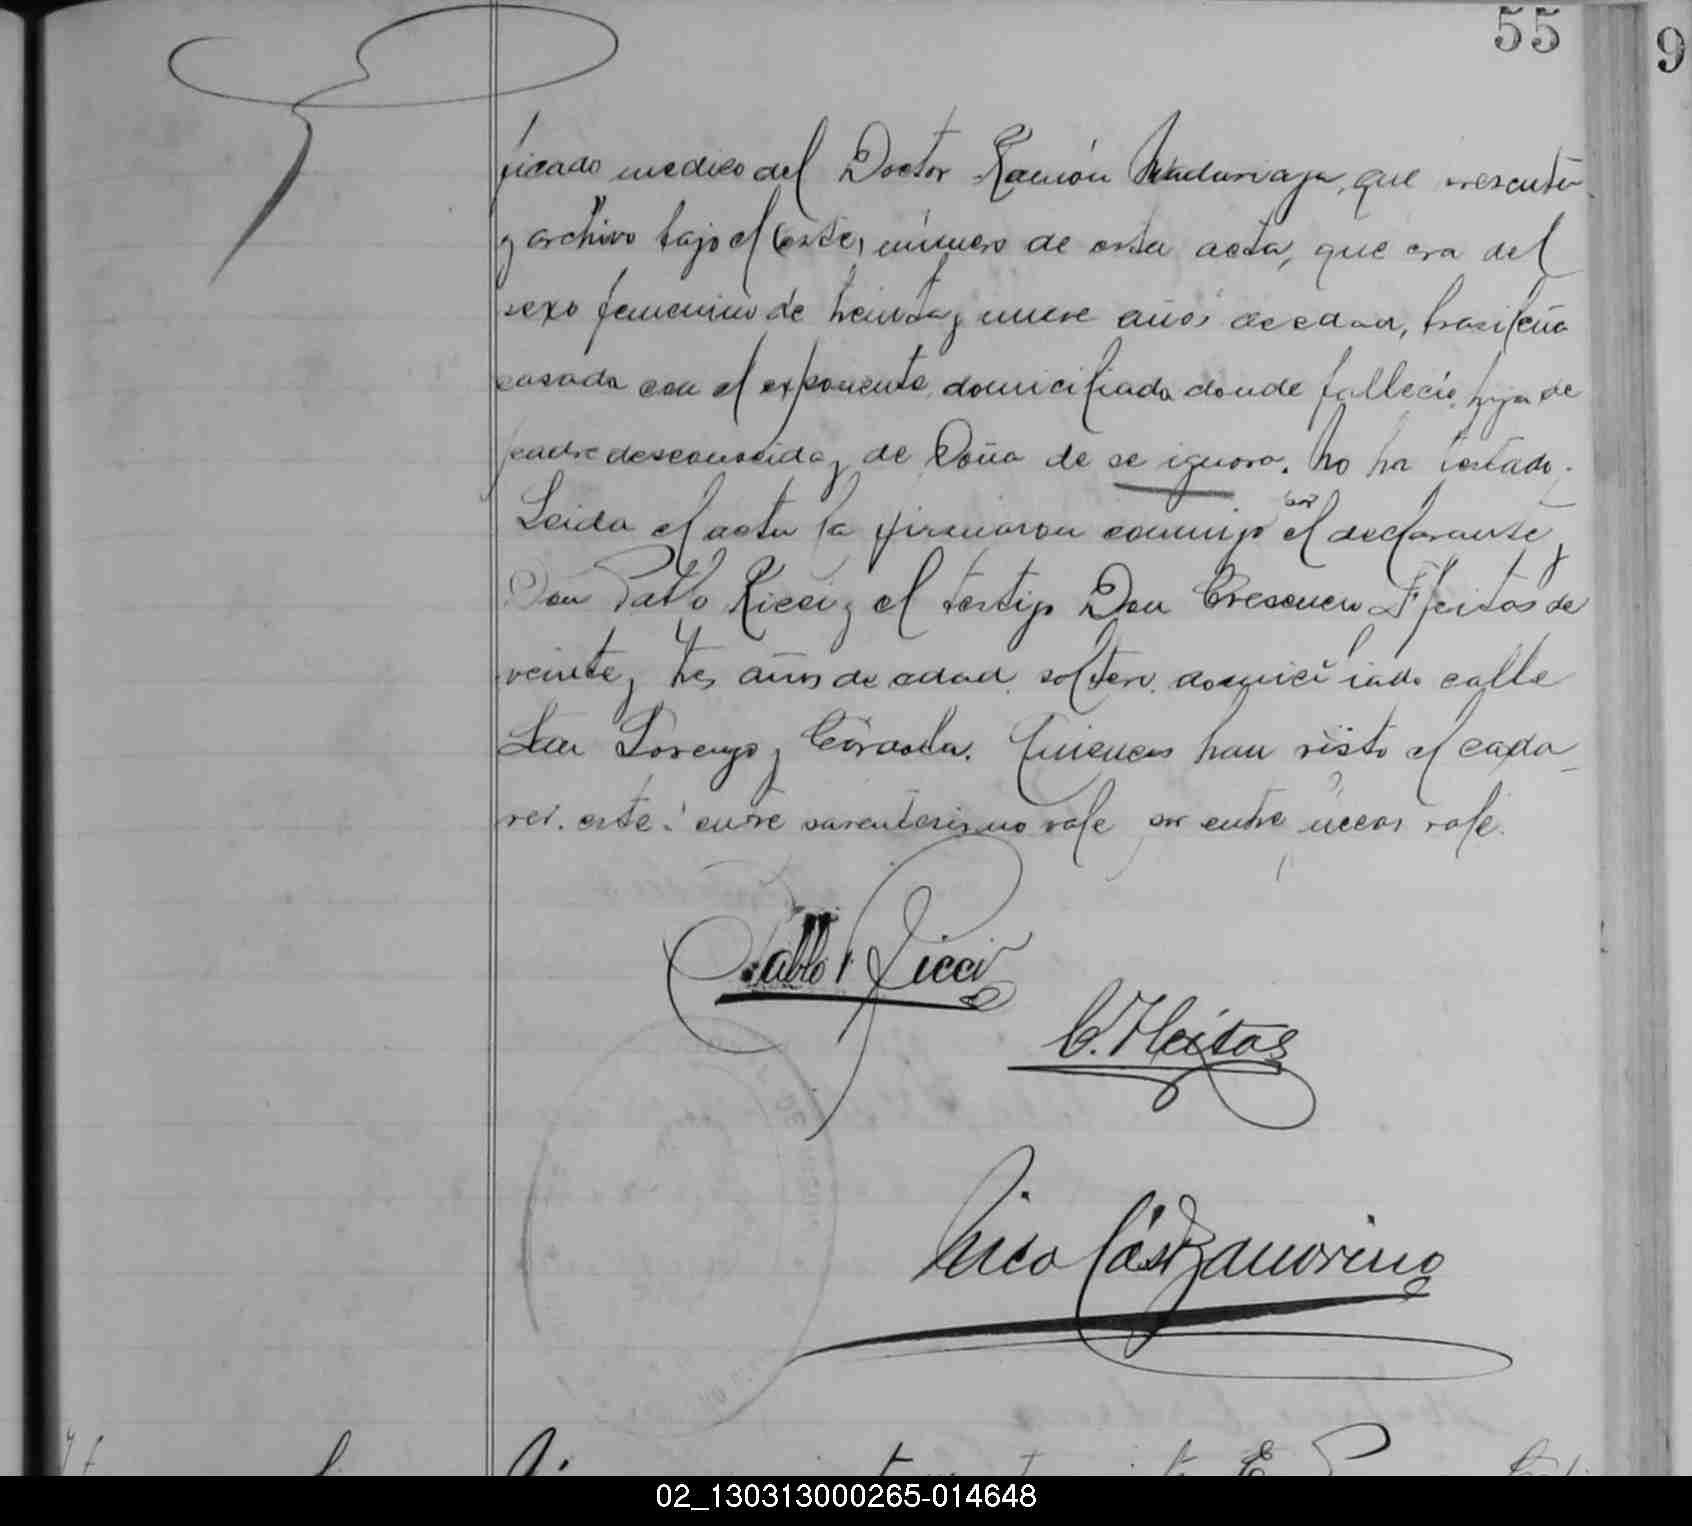 55
9
ficado medico del Doctor Ramón Madariaga, que presentó
y archivo bajo el (este) número de esta acta, que era del
sexo femenino de treinta y nueve años de edad, brasileña
casada con el exponente, domiciliada donde falleció, hija de
padre desconocido y de Doña de se ignora. No ha testado.
Leida el acta la firmaron conmigo por el declarante
Don Pablo Ricci y el testigo Don Cresencio Fleitas de
veinte y tres años de edad, soltero, domiciliado calle
San Lorenzo y Córdoba. Quienes han visto el cada
ver. este: entre parentesis no vale por entre lineas vale.
Pablo Ricci
C. Fleitas
02_130313000265-014648